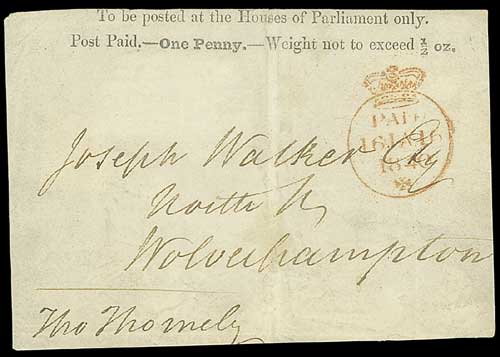 To be posted at the Houses of Parliament only.
Post Paid.—One Penny.—Weight not to exceed ½ oz.
PAID
16 JA 16
1840
Joseph Walker Esq
North St
Wolverhampton
Tho Thornely